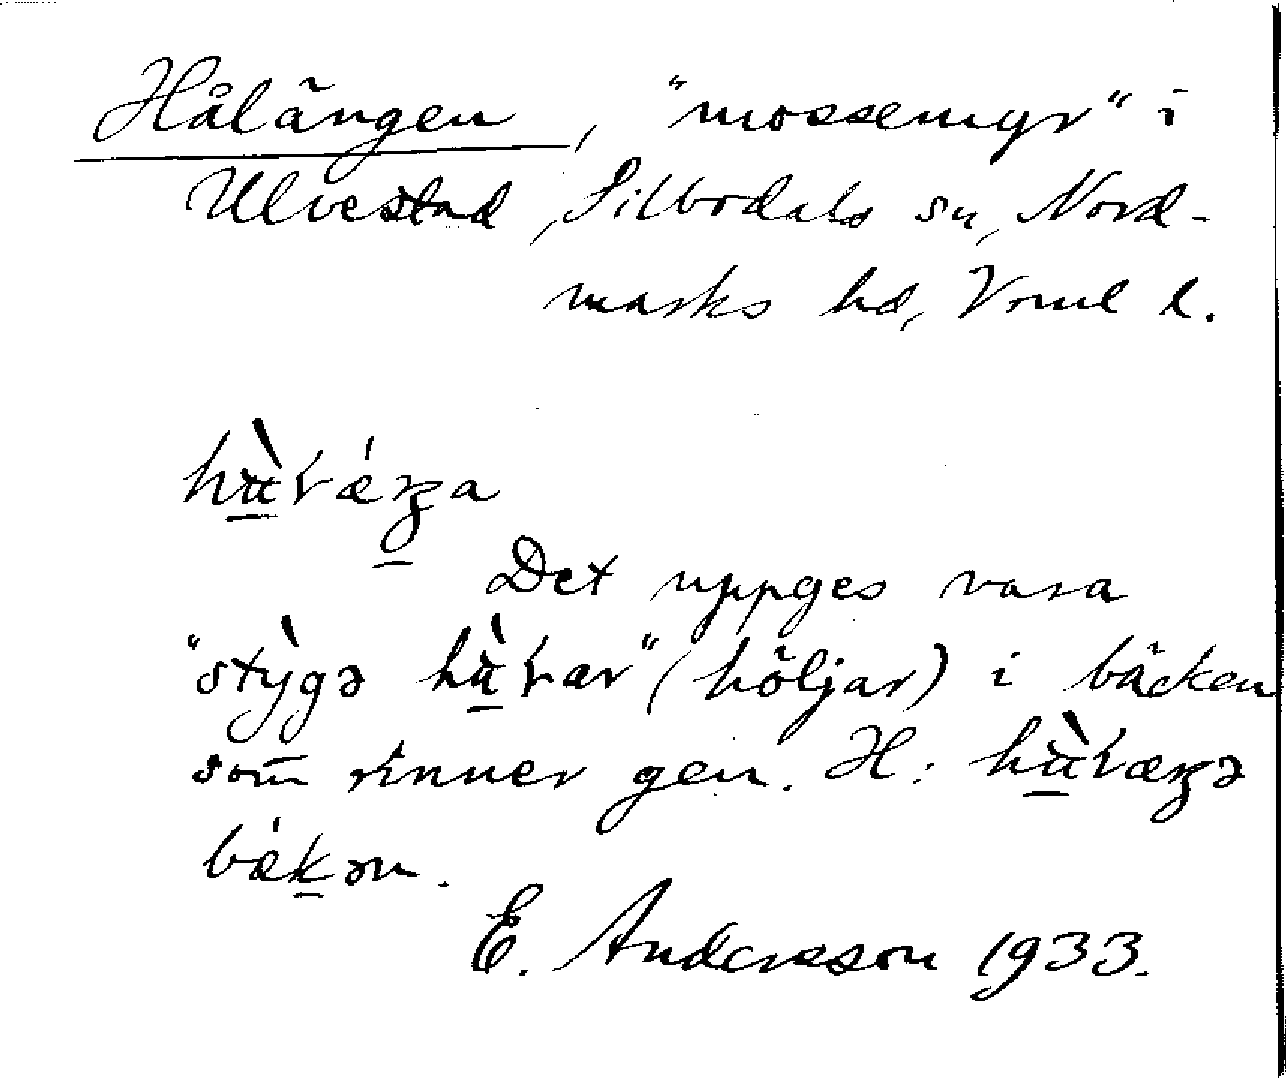 Hålängen, "mossemyr" i
Ulvestad, Silbodals sn, Nord-
marks hd, Vrml l.
Det uppges vara
"stỳgə hàꞭar" (höljar) i bäcken
som rinner gen. H:
bækən.
E. Andersson 1933.